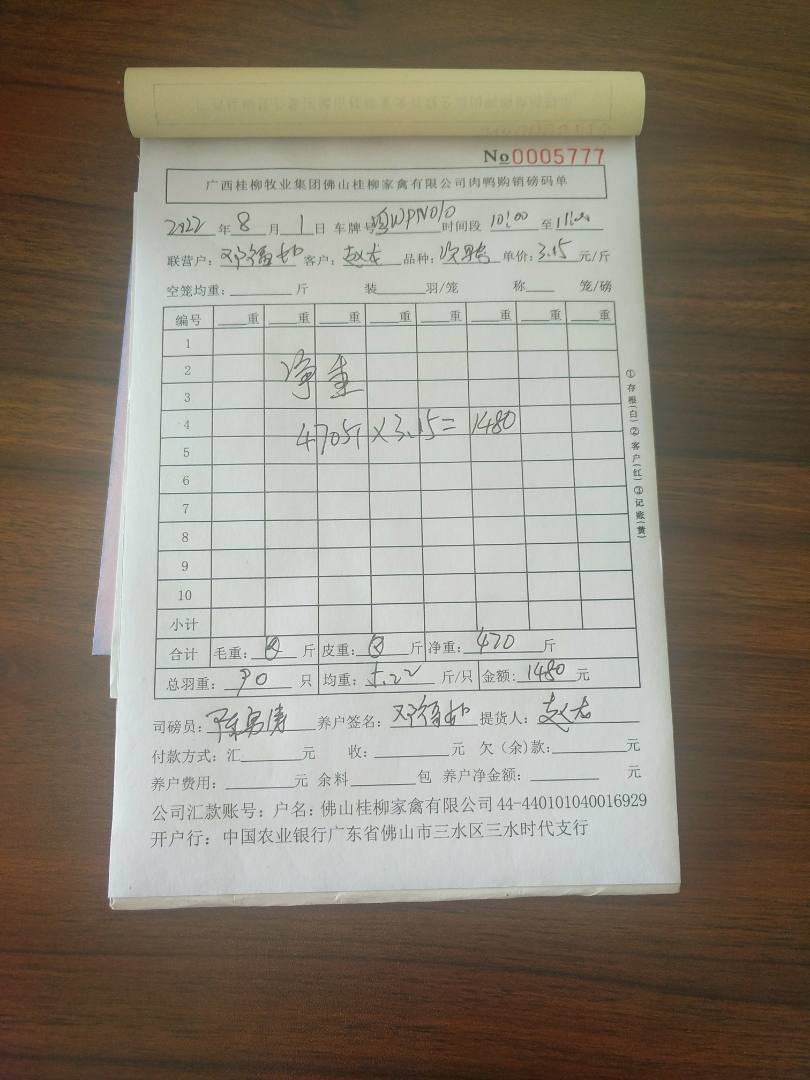 No 0005777
广西桂柳牧业集团佛山桂柳家禽有限公司肉鸭购销磅码单
2022年8月1日 车牌号粤WPN010 时间段10:00至11:00
联营户: 客户:赵龙 品种:次鸭 单价:3.15元/斤
空笼均重:______斤 装______羽/笼 称____笼/磅
编号 ____重 ____重 ____重 ____重 ____重 ____重 ____重 ____重
1
2
净重
3
4
470斤×3.15=1480
5
6
7
8
9
10
小计
合计 毛重: 斤 皮重: 斤 净重:470斤
总羽重:90只 均重:5.22斤/只 金额:1480元
司磅员: 养户签名: 提货人:赵龙
付款方式:汇______元 收:______元 欠(余)款:______元
养户费用:______元 余料______包 养户净金额:______元
公司汇款账号:户名:佛山桂柳家禽有限公司44-440101040016929
开户行:中国农业银行广东省佛山市三水区三水时代支行
①存根(白)②客户(红)③记账(黄)